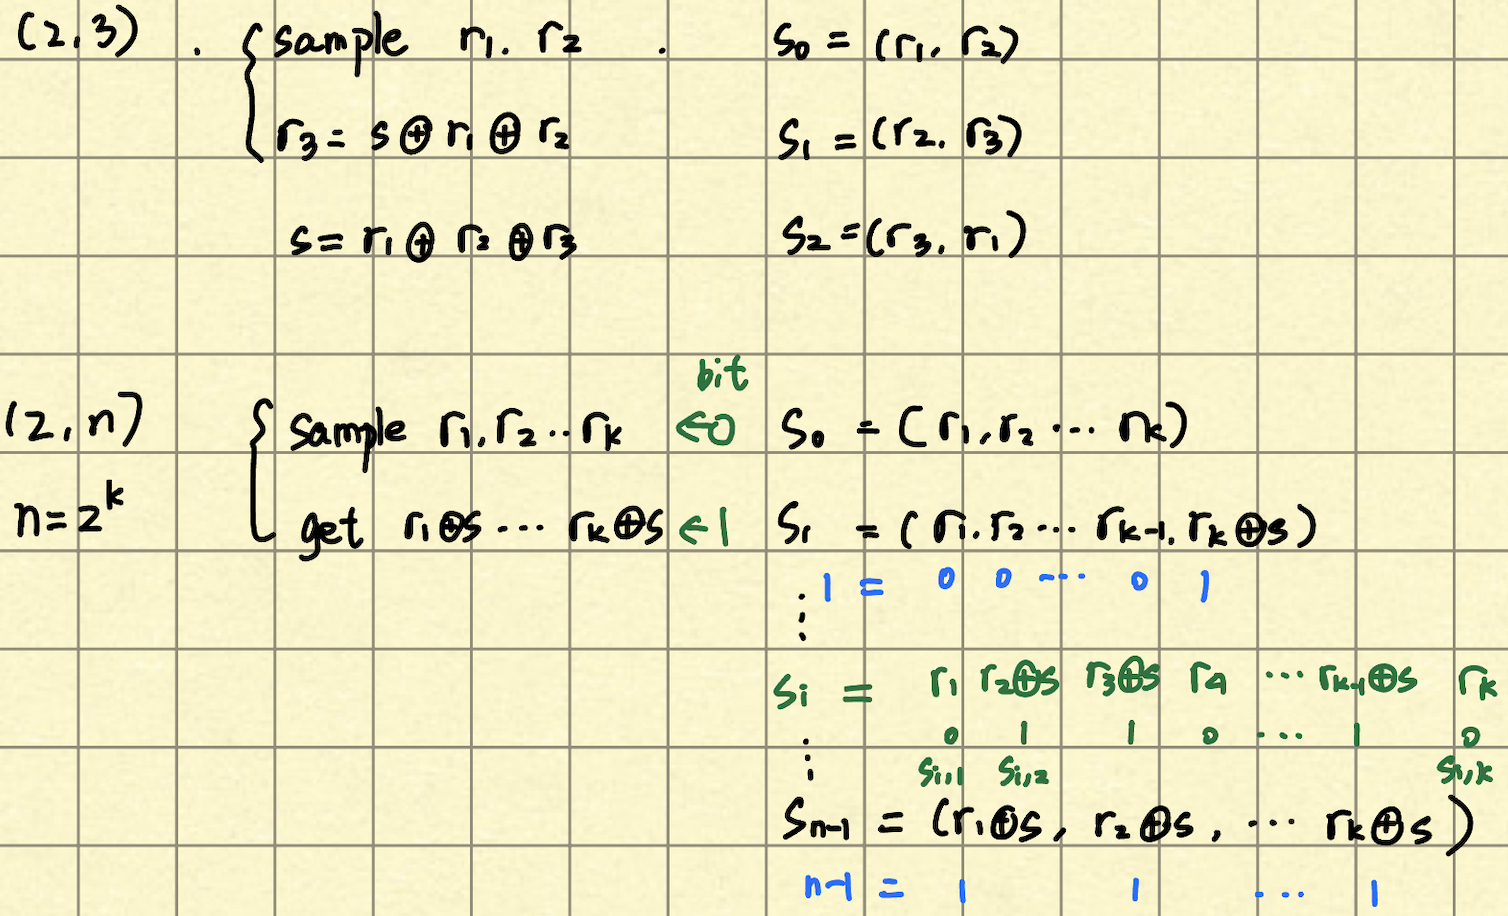 (2,3) . { sample r₁. r₂ . S₀ = (r₁, r₂)
r₃ = s ⊕ r₁ ⊕ r₂ S₁ = (r₂, r₃)
s = r₁ ⊕ r₂ ⊕ r₃ S₂ = (r₃, r₁)
bit
(2,n) { sample r₁,r₂..rₖ ←0 S₀ = (r₁,r₂ ··· rₖ)
n=2ᵏ get r₁⊕s ··· rₖ⊕s ←1 S₁ = (r₁,r₂ ··· rₖ₋₁, rₖ⊕s)
⋮ 1 = 0 0 ··· 0 1
Sᵢ = r₁ r₂⊕s r₃⊕s r₄ ··· rₖ₋₁⊕s rₖ
⋮ 0 1 1 0 ··· 1 0
Sᵢ,₁ Sᵢ,₂ Sᵢ,ₖ
Sₙ₋₁ = (r₁⊕s, r₂⊕s, ··· rₖ⊕s)
n-1 = 1 1 ··· 1